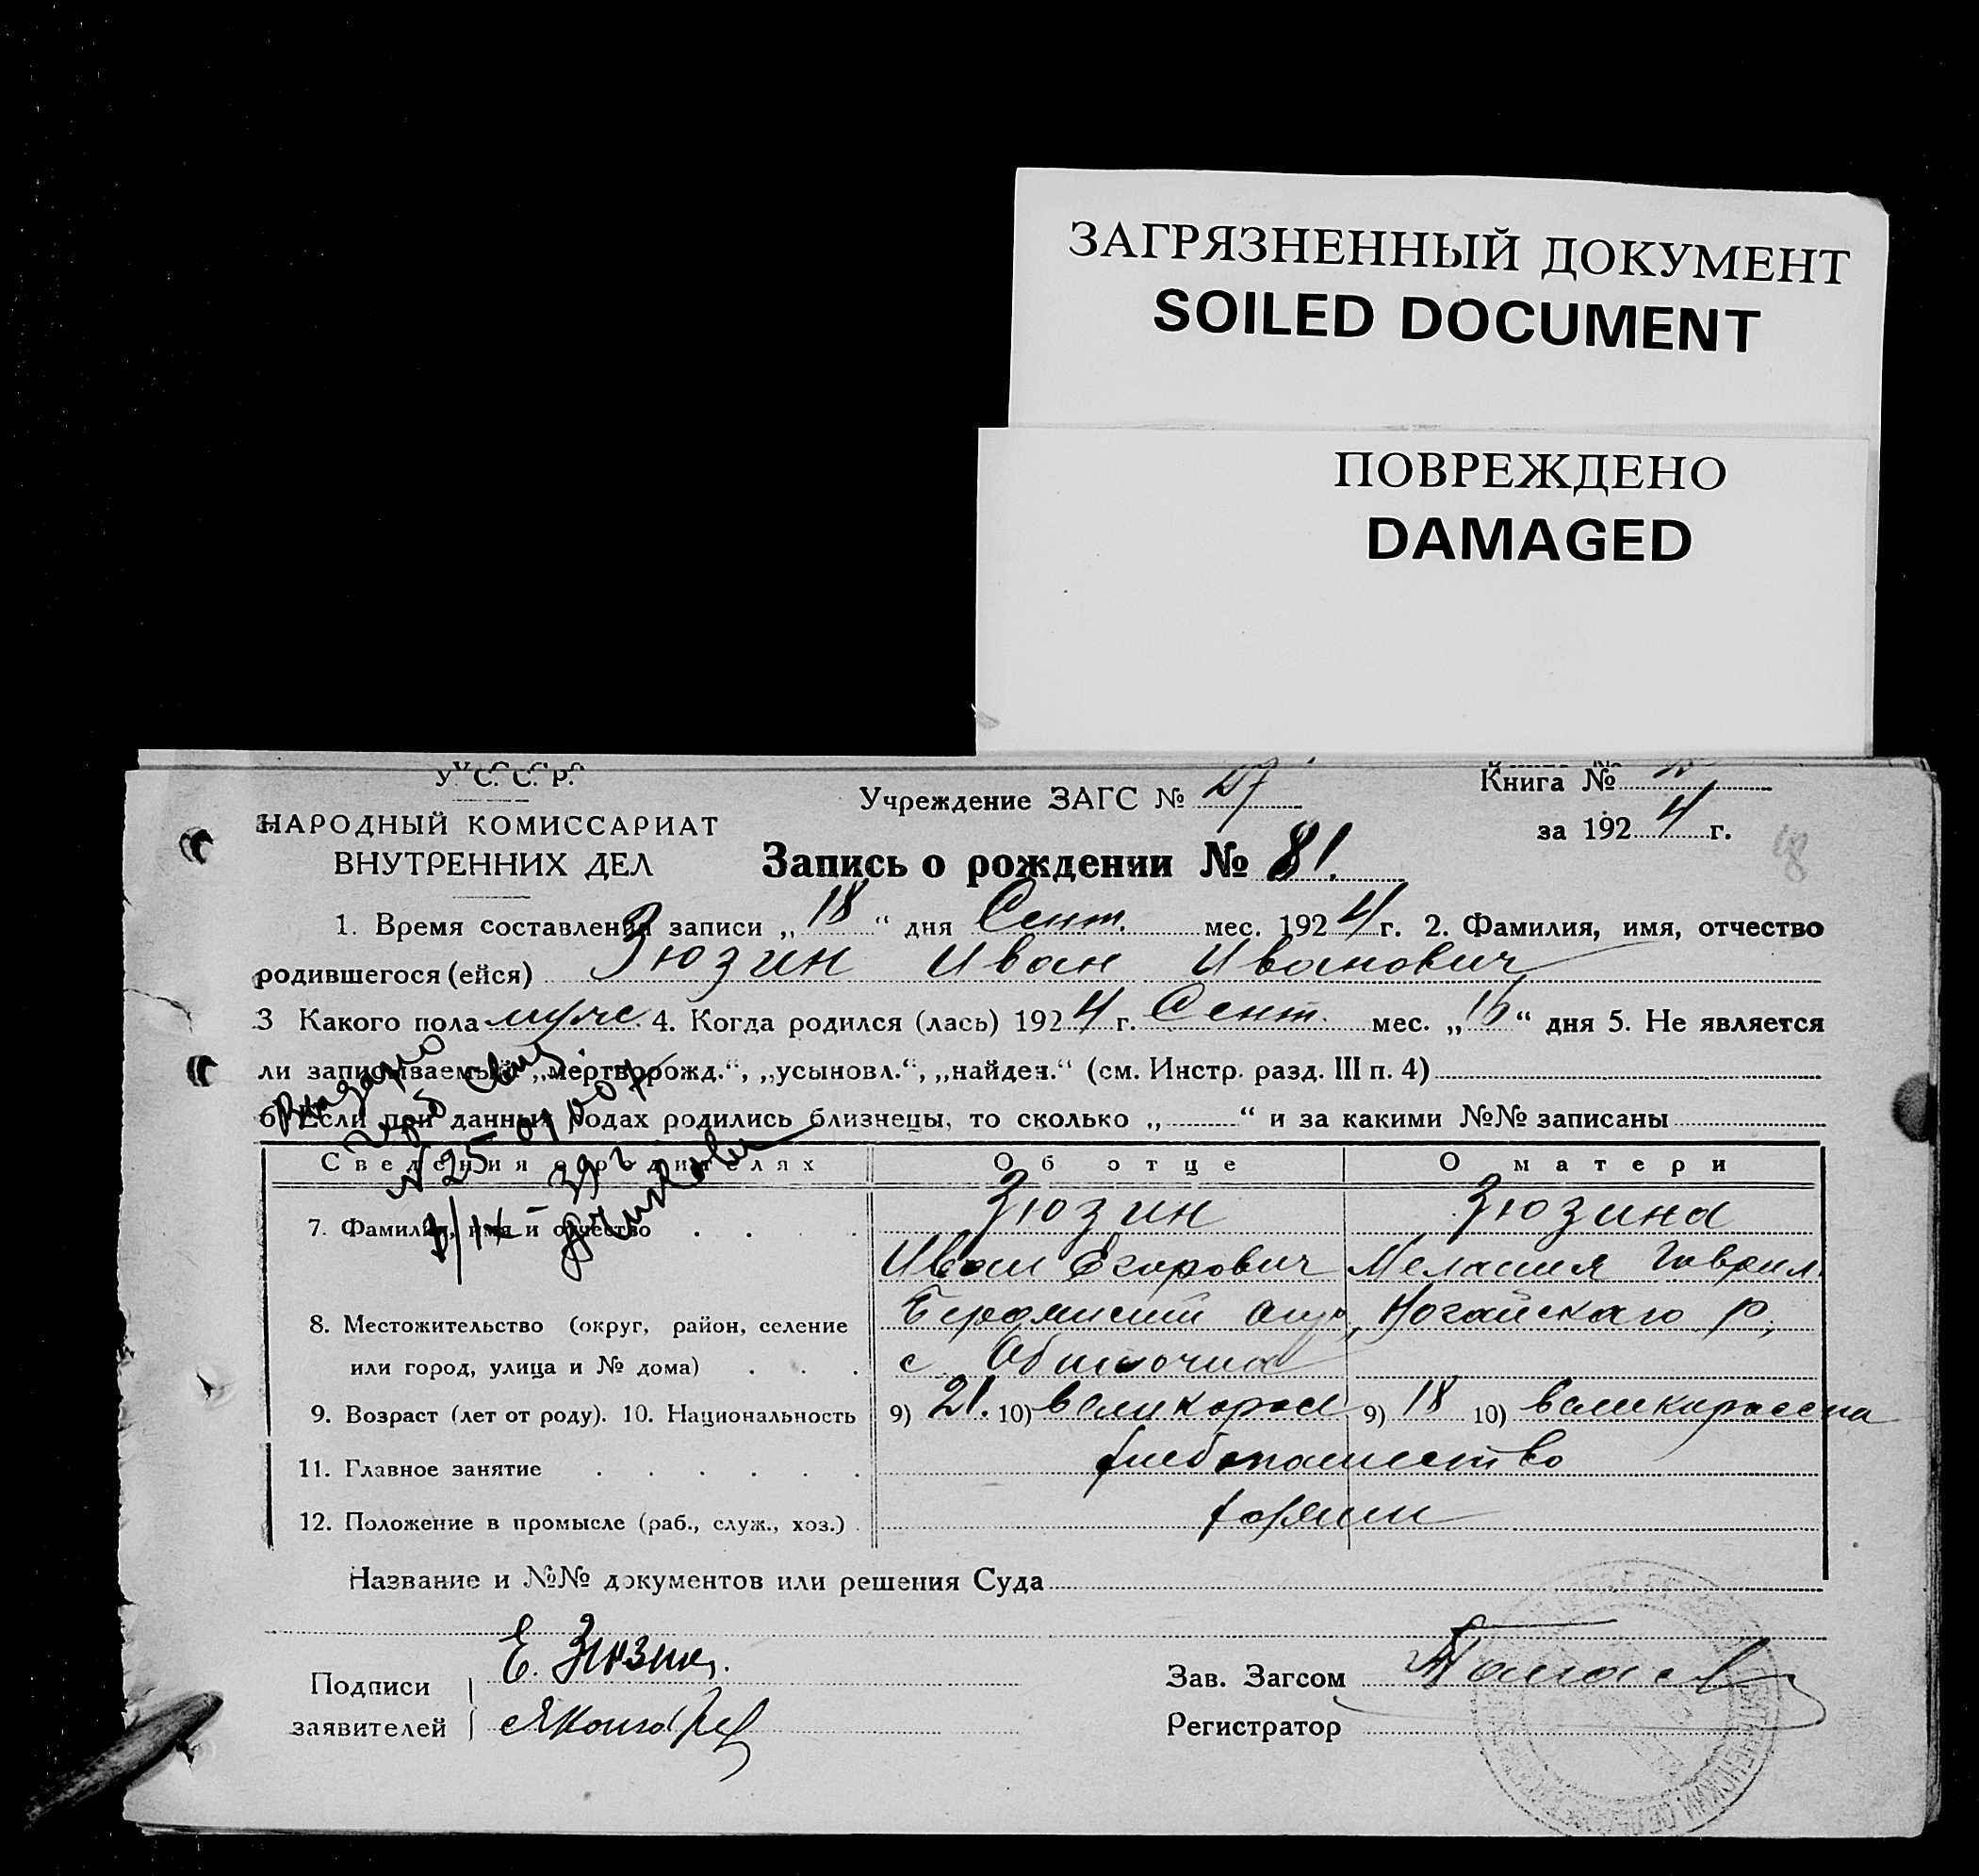 ЗАГРЯЗНЕННЫЙ ДОКУМЕНТ
SOILED DOCUMENT
ПОВРЕЖДЕНО
DAMAGED
У. С. С. Р.
НАРОДНЫЙ КОМИССАРИАТ
ВНУТРЕННИХ ДЕЛ
Учреждение ЗАГС №
Книга №
за 1924 г.
Запись о рождении № 81.
1. Время составления записи „18“ дня Сент. мес. 1924 г. 2. Фамилия, имя, отчество
родившегося (ейся) Зюзин Иван Иванович
3 Какого пола муж. 4. Когда родился (лась) 1924 г. Сент. мес. „16“ дня 5. Не является
ли записываемый „мертворожд.“, „усыновл.“, „найден.“ (см. Инстр. разд. III п. 4)
6. Если при данных родах родились близнецы, то сколько „ “ и за какими №№ записаны
Выдано
№ 25
39 г
Сведения о родителях Об отце О матери
7. Фамилия, имя и отчество Зюзин Зюзина
Иван Егорович Мелания Гаврил.
8. Местожительство (округ, район, селение Бердянский окр, Ногайскаго р,
или город, улица и № дома) с Обиточна
9. Возраст (лет от роду). 10. Национальность 9) 21. 10) великорос 9) 18 10) великоросска
11. Главное занятие хлебопашество
12. Положение в промысле (раб., служ., хоз.) хозяин
Название и №№ документов или решения Суда
Подписи Е. Зюзин.
заявителей
Зав. Загсом
Регистратор